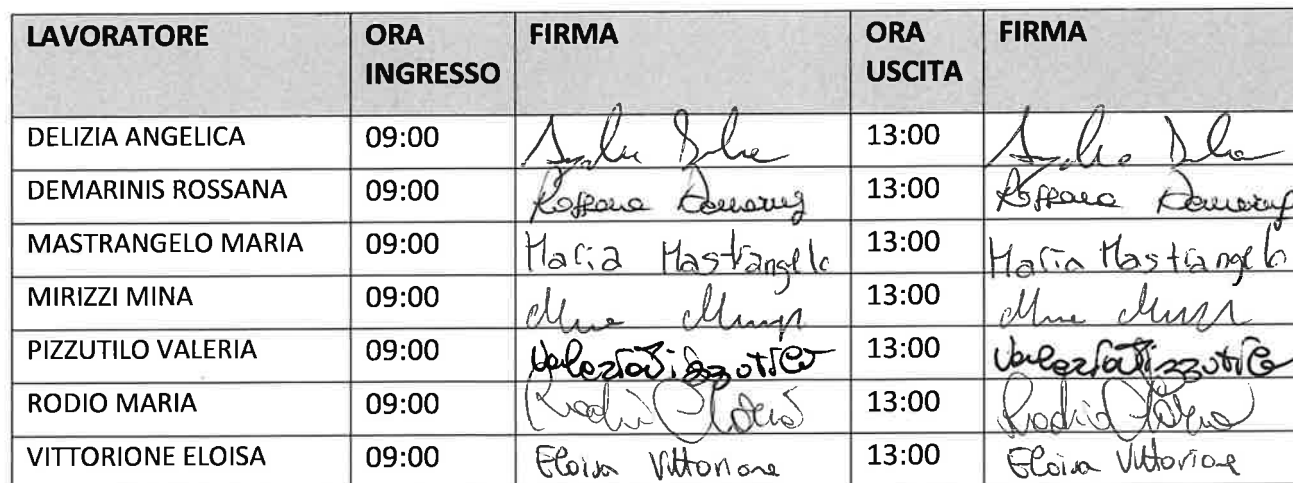 LAVORATORE ORA INGRESSO FIRMA ORA USCITA FIRMA
DELIZIA ANGELICA 09:00 13:00
DEMARINIS ROSSANA 09:00 Rossana Demarinis 13:00 Rossana Demarinis
MASTRANGELO MARIA 09:00 Maria Mastrangelo 13:00 Maria Mastrangelo
MIRIZZI MINA 09:00 13:00
PIZZUTILO VALERIA 09:00 Valeria Pizzutilo 13:00 Valeria Pizzutilo
RODIO MARIA 09:00 Rodio Maria 13:00 Rodio Maria
VITTORIONE ELOISA 09:00 Eloisa Vittorione 13:00 Eloisa Vittorione